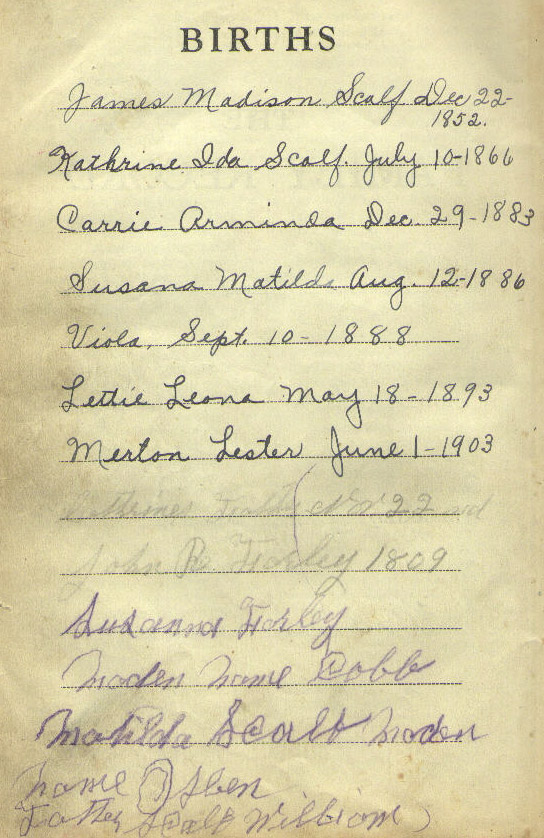 BIRTHS
James Madison Scalf Dec 22-
1852.
Kathrine Ida Scalf. July 10-1866
Carrie Arminda Dec. 29-1883
Susana Matilda Aug. 12-1886
Viola, Sept. 10-1888
Lettie Leona May 18-1893
Merton Lester June 1-1903
22
John R. Farley 1809
Suzanna Farley
maden name Cobb
Matilda Scalf maden
name
Father Scalf William